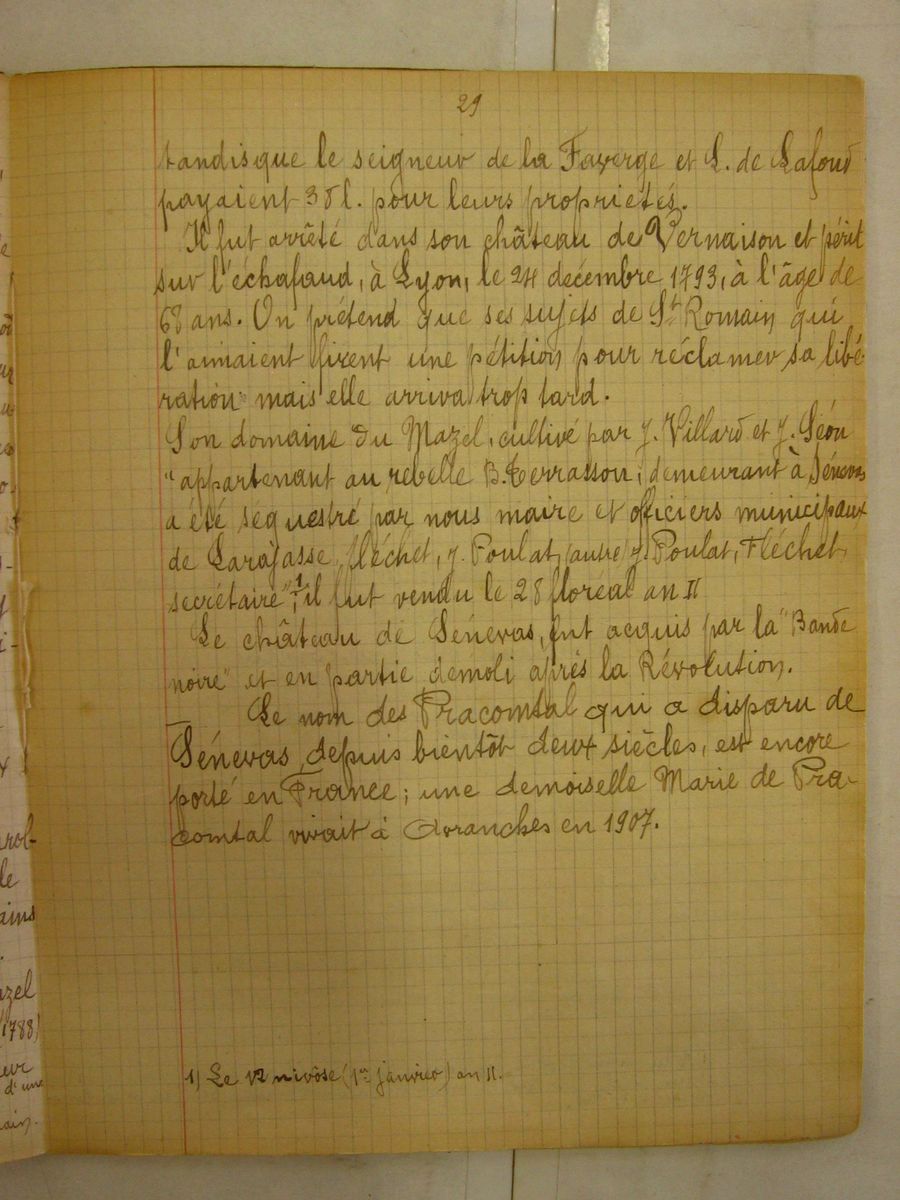 29
tandisque le seigneur de la Faverge et L. de Lafond
payaient 38 l. pour leurs proprietés.
Il fut arrêté dans son château de Vernaison et périt
sur l'échafaud, à Lyon, le 24 décembre 1793, à l'âge de
68 ans. On prétend que ses sujets de St Romain qui
l'aimaient firent une pétition pour réclamer sa libé-
ration mais elle arriva trop tard.
Son domaine du Mazel, cultivé par J. Villard et J. Séon
"appartenant au rebelle B. Terrasson, demeurant à Sénevas
a été sequestré par nous maire et officiers municipaux
de Larajasse, fléchet, J. Poulat, (autre) J. Poulat, Fléchet,
secrétaire",1 il fut vendu le 28 floreal an II
Le château de Sénevas, fut acquis par la "Bande
noire" et en partie démoli après la Révolution.
Le nom des Pracomtal qui a disparu de
Sénevas depuis bientôt deux siècles, est encore
porté en France; une demoiselle Marie de Pra-
comtal vivait à Avranches en 1907.
1) Le 12 nivôse (1er janvier) an II.
zel
(1788)
d'une